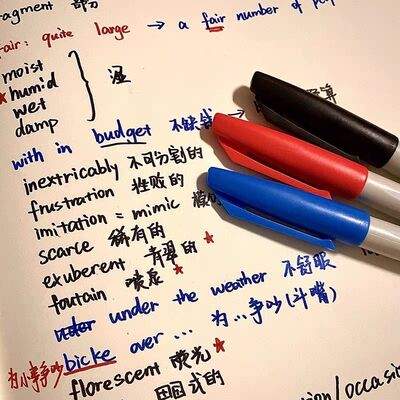 agment 部分
air: quite large → a fair number of peop
moist
★ humid } 湿
wet
damp
with in budget 不缺钱 → 算
inextricably 不可分割的
frustration 挫败的
imitation = mimic 模
scarce 稀有的
exuberent 青翠的 ★
foutain 喷泉 ★
under the weather 不舒服
为小事争吵 bicke over ... 为...争吵(斗嘴)
florescent 荧光 ★
田园式的
tion/occasi